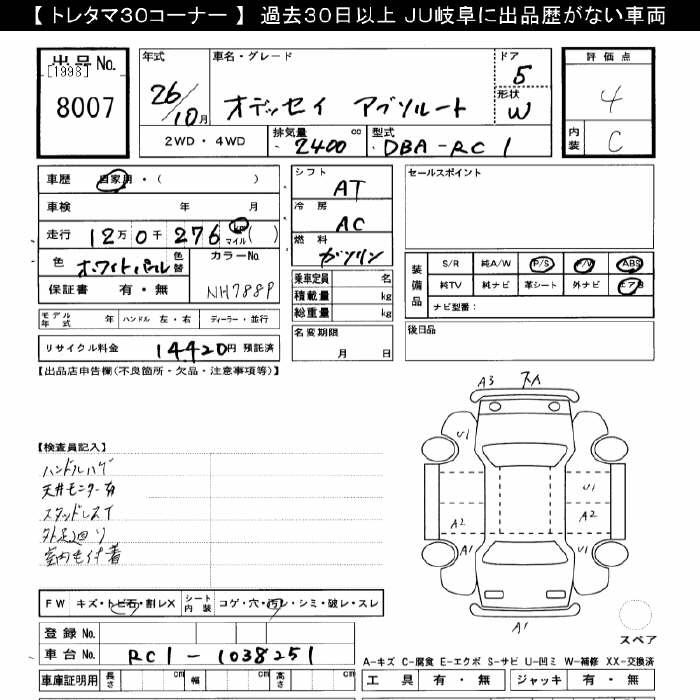 【 トレタマ30コーナー 】 過去30日以上 JU岐阜に出品歴がない車両
出品No.
[1998]
8007
年式
26/10月
車名・グレード
オデッセイ アブソルート
ドア
5
形状
W
2WD・4WD
排気量 2400 cc
型式 DBA-RC1
評価点
4
内装
C
車歴 自家用・( )
車検 年 月
走行 12万0千276 km マイル( )
色 ホワイトパール 色替
カラーNo. NH788P
保証書 有・無
モデル年式 年 ハンドル 左・右 ディーラー・並行
リサイクル料金 14420円 預託済
シフト AT
冷房 AC
燃料 ガソリン
乗車定員 名
積載量 kg
総重量 kg
名変期限
月 日
セールスポイント
装備品
S/R 純A/W P/S P/W ABS
純TV 純ナビ 革シート 外ナビ エアB
ナビ型番:
後日品
【出品店申告欄(不良箇所・欠品・注意事項等)】
【検査員記入】
ハンドルハゲ
天井モニター有
スタッドレスT
外足廻り
室内毛付着
A3
U1
U1
A2
A2
A1
A1
A1
スペア
FW キズ・トビ石・割レX シート内装 コゲ・穴・汚レ・シミ・破レ・スレ
登録No.
車台No. RC1-1038251
車庫証明用 長さ cm 幅 cm 高さ cm
A-キズ C-腐食 E-エクボ S-サビ U-凹ミ W-補修 XX-交換済
工具 有・無 ジャッキ 有・無